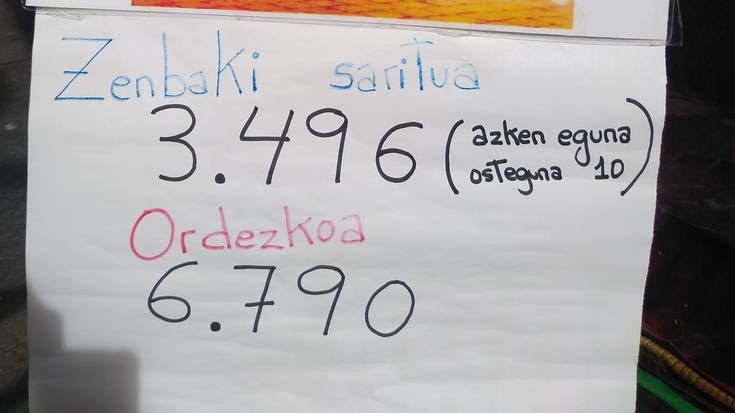 Zenbaki saritua
3.496 (azken eguna
osteguna 10)
Ordezkoa
6.790